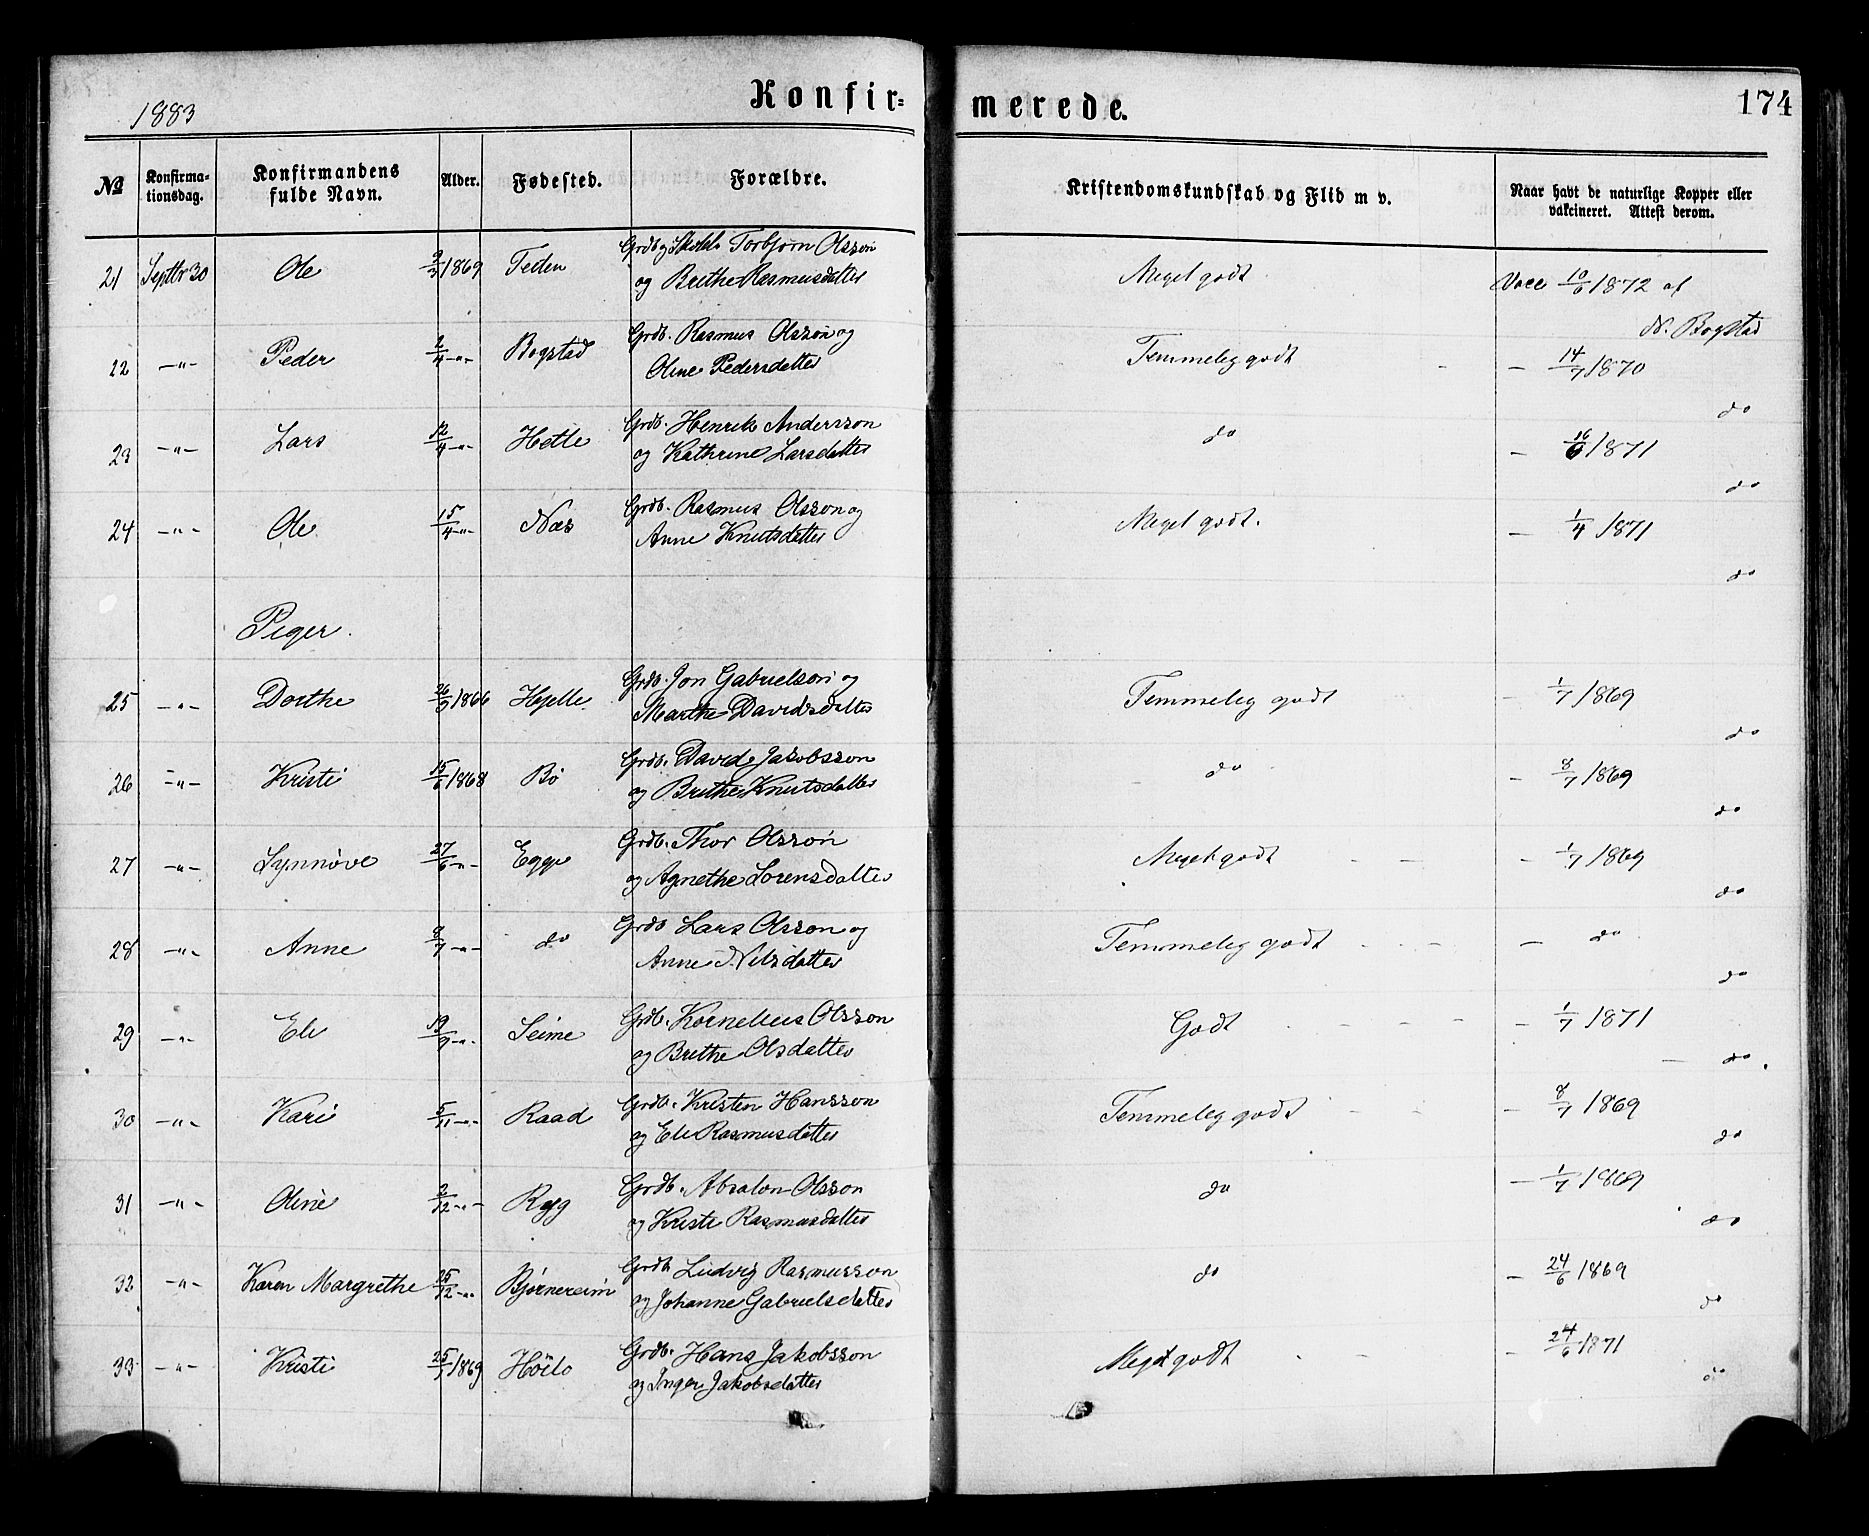 1883
Konfir-
merede.
174
№
Konfirma-
tionsdag.
Konfirmandens
fulde Navn.
Alder.
Fødested.
Forældre.
Kristendomskundskab og Flid m v.
Naar havt de naturlige Kopper eller
vakcineret. Attest derom.
21 Septbr 30 Ole 2/3 1869 Feden Grdb og Torbjørn Olsson
og Brithe Rasmusdatter Meget godt Vacc 10/6 1872 af
N. Bogstad
22 -"- Peder 2/4 -"- Bogstad Grdb. Rasmus Olsson og
Oline Pedersdatter Temmeleg godt - 14/7 1870
do
23 -"- Lars 12/4 -"- Hetle Grdb. Henrik Andersson
og Kathrine Larsdatter do - 16/6 1871
do
24 -"- Ole 15/4 -"- Næs Grdb. Rasmus Olsson og
Anne Knutsdatter Meget godt. - 1/4 1871
do
Piger.
25 -"- Dorthe 26/9 1866 Hjelle Grdb. Jon Gabrielson og
Marthe Davidsdatter Temmeleg godt - 1/7 1869
do
26 -"- Kristi 15/6 1868 Bø Grdb. David Jakobsson
og Brithe Knutsdatter do - 8/7 1869
do
27 -"- Synnøve 27/6 -"- Egge Grdb. Thor Olsson
og Agnethe Lorensdatter Meget godt - 1/7 1869
do
28 -"- Anne 8/7 -"- do Grdb Lars Olsson og
Anne Nilsdatter Temmeleg godt - do
do
29 -"- Eli 19/9 -"- Seime Grdb. Kornelius Olsson
og Brithe Olsdatter Godt - 1/7 1871
do
30 -"- Kari 5/11 -"- Raad Grdb. Kristen Hansson
og Eli Rasmusdatter Temmeleg godt - 8/7 1869
do
31 -"- Oline 2/12 -"- Ryg Grdb. Absalon Olsson
og Kristi Rasmusdatter do - 1/7 1869
do
32 -"- Karen Margrethe 25/12 -"- Bjørnereim Grdb Ludvig Rasmusson
og Johanne Gabrielsdatter do - 24/6 1869
do
33 -"- Kristi 25/7 1869 Høilo Grdb. Hans Jakobsson
og Inger Jakobsdatter Meget godt - 24/6 1871
do